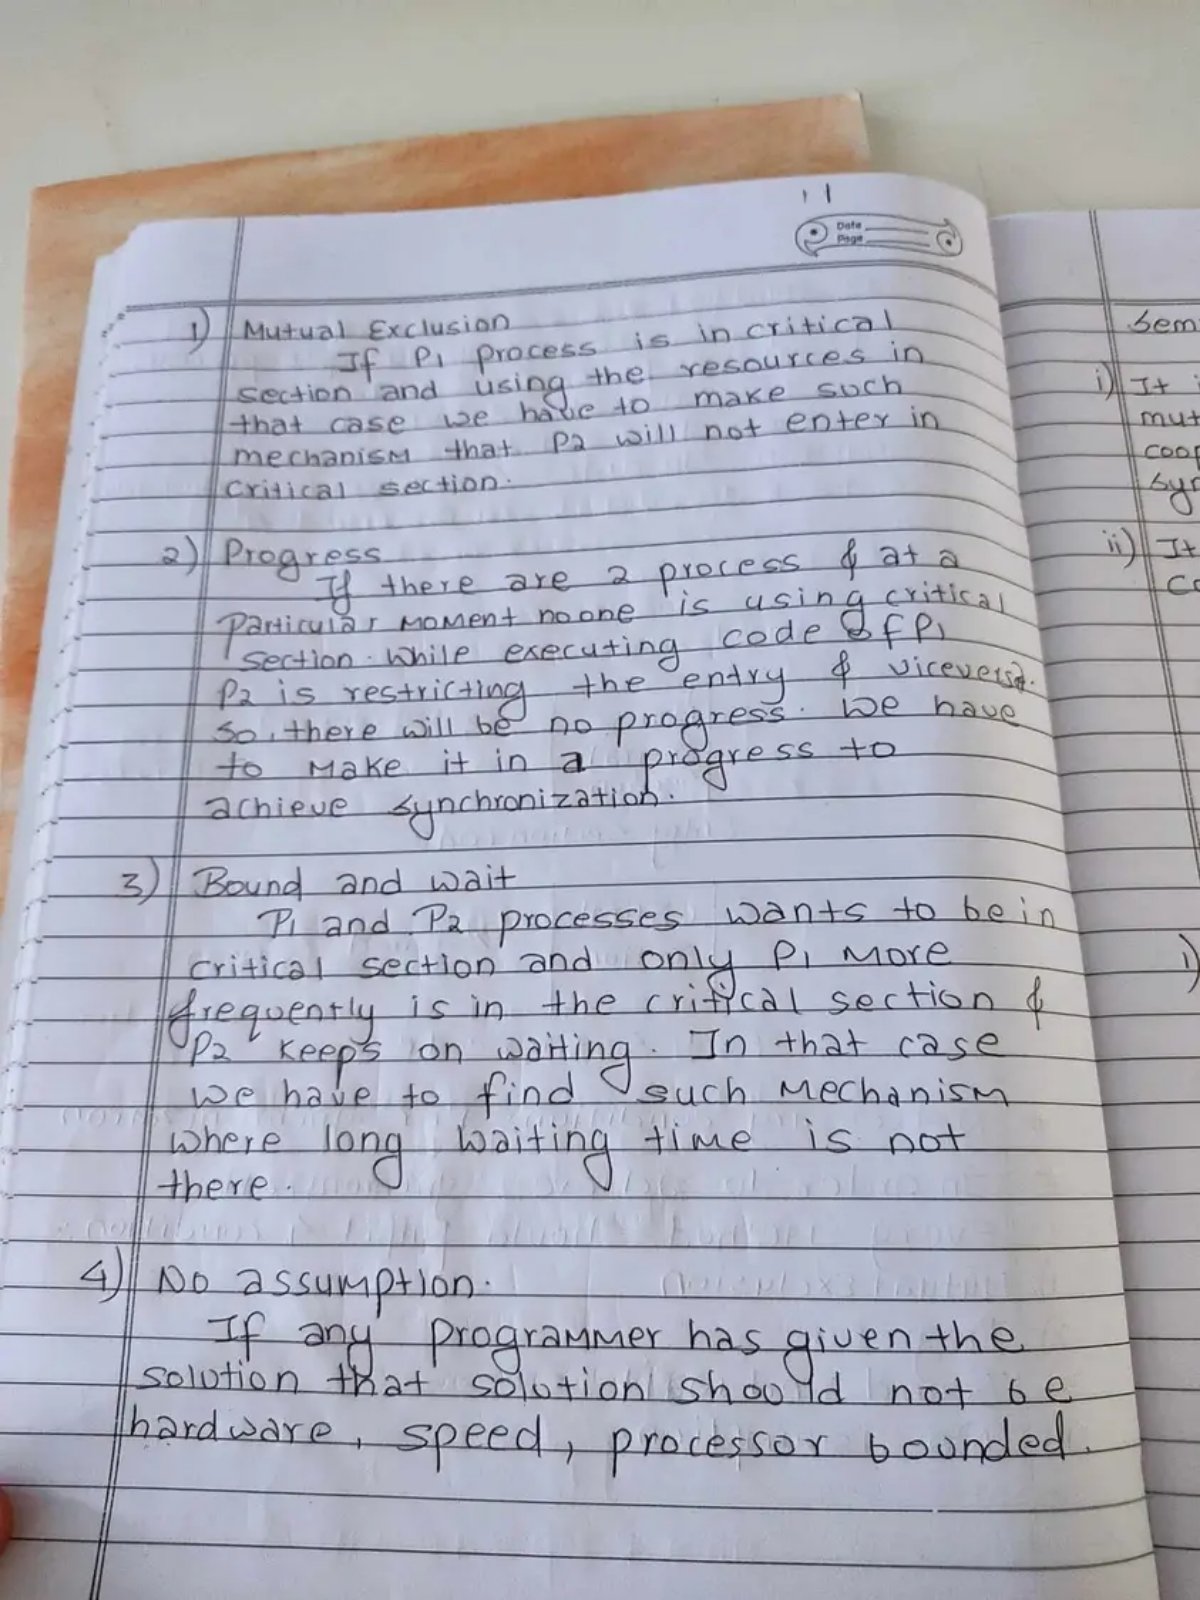 Date
Page
1) Mutual Exclusion
If P1 process is in critical
section and using the resources in
that case we have to make such
mechanism that P2 will not enter in
critical section.
2) Progress
If there are 2 process & at a
Particular moment no one is using critical
section. While executing code of P1
P2 is restricting the entry & viceversa.
So, there will be no progress. We have
to make it in a progress to
achieve synchronization.
3) Bound and wait
P1 and P2 processes wants to be in
critical section and only P1 more
frequently is in the critical section &
P2 keeps on waiting. In that case
we have to find such mechanism
where long waiting time is not
there.
4) No assumption.
If any programmer has given the
solution that solution should not be
hardware, speed, processor bounded.
i) It
mut
ii) It
i)